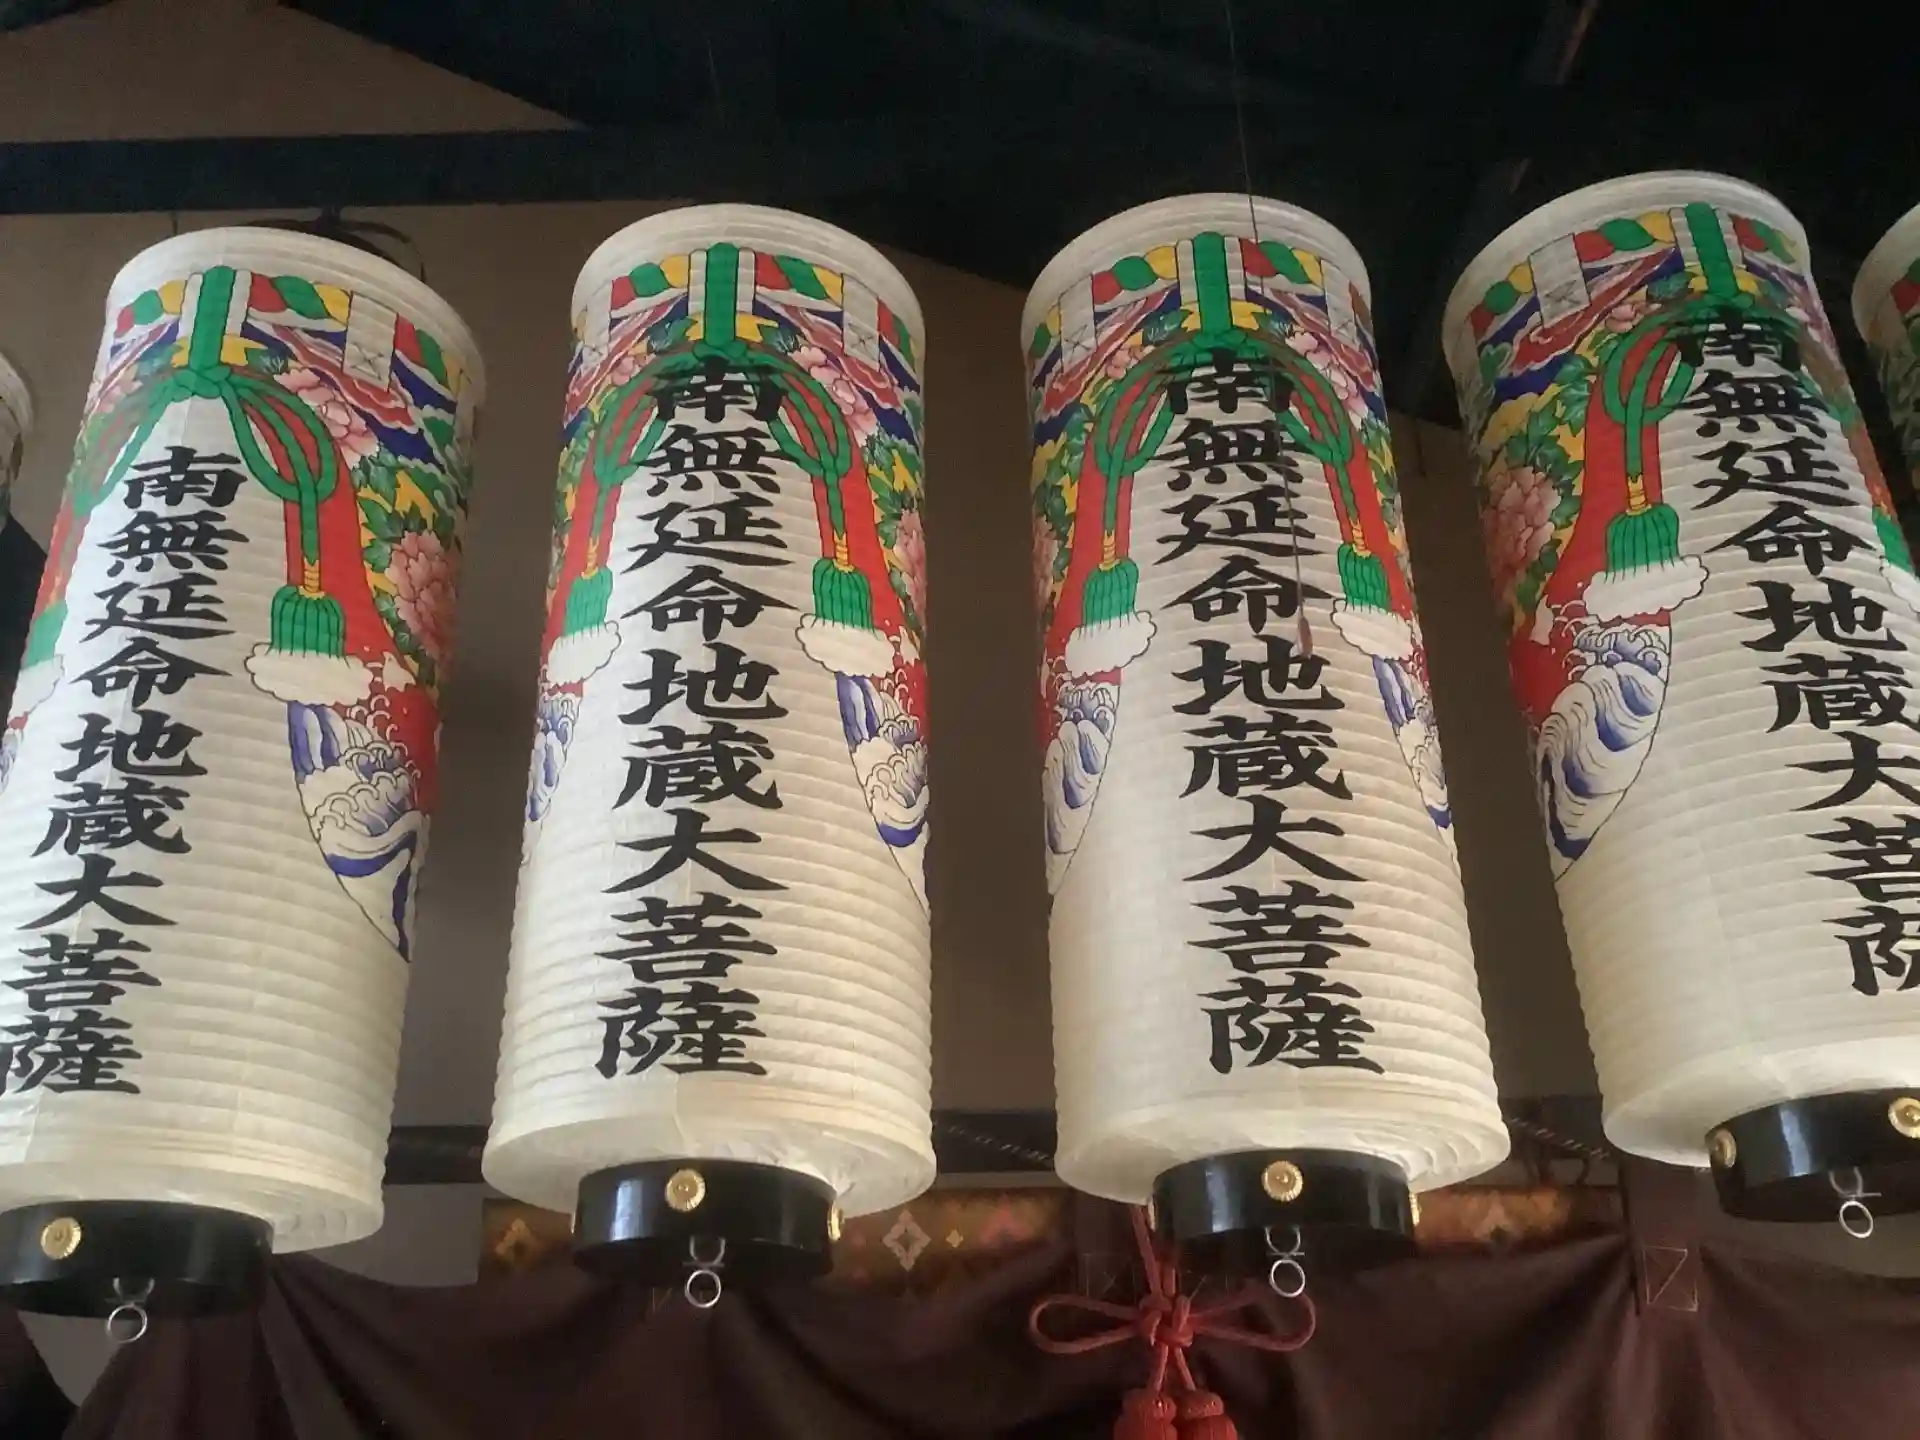 南無延命地蔵大菩薩
南無延命地蔵大菩薩
南無延命地蔵大菩薩
南無延命地蔵大菩薩